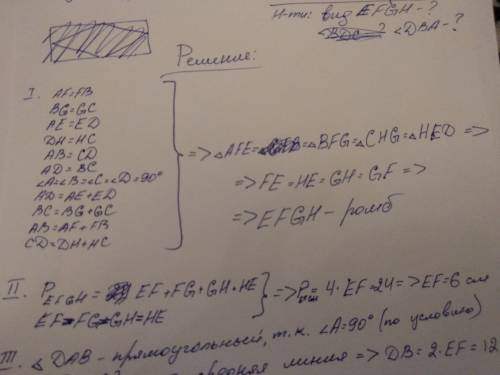 Н-ти: вид EFGH-?
∠DBA-?
Решение:
I. AF=FB
BG=GC
AE=ED
DH=HC
AB=CD
AD=BC
∠A=∠B=∠C=∠D=90°
AD=AE+ED
BC=BG+GC
AB=AF+FB
CD=DH+HC
=> △AFE=△BFG=△CHG=△HED =>
=> FE=HE=GH=GF =>
=> EFGH - ромб
II. P EFGH = EF+FG+GH+HE
EF=FG=GH=HE
=> P EFGH = 4·EF=24 => EF=6 см
III. △DAB - прямоугольный, т.к. ∠A=90° (по условию)
средняя линия => DB=2·EF=12